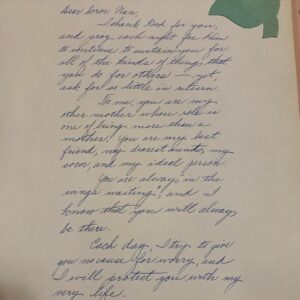 Dear Soror Nan,
I thank God for you,
and pray each night for Him
to continue to sustain you for
all of the kinds of things that
you do for others — yet,
ask for so little in return.
To me, you are my
other mother whose role is
one of being more than a
mother! You are my best
friend, my dearest aunt, my
soror, and my ideal person.
You are always in the
wings waiting, and I
know that you will always
be there.
Each day, I try to give
you no cause for worry, and
I will protect you with my
very life.